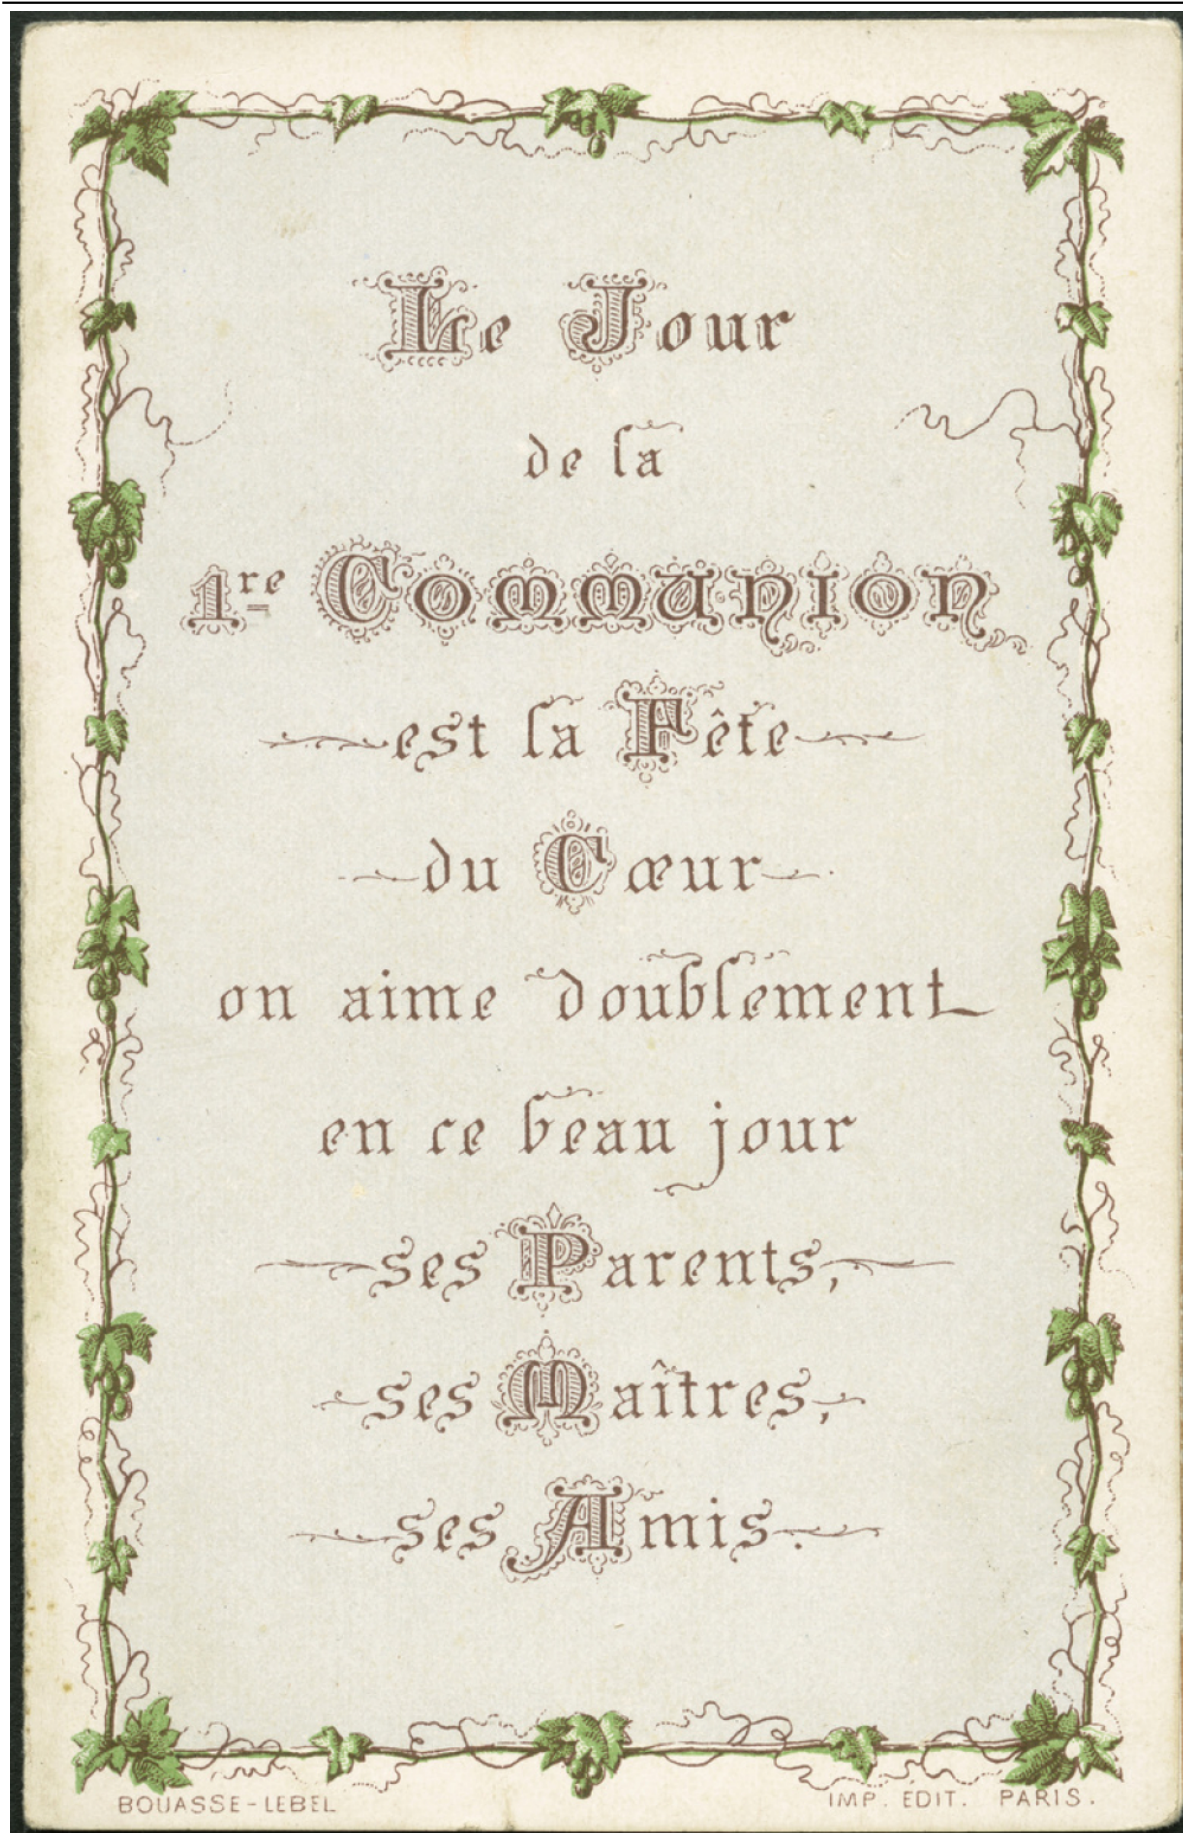 Le Jour
de la
1re Communion
est la Fête
du Cœur
on aime doublement
en ce beau jour
ses Parents,
ses Maîtres,
ses Amis.
BOUASSE-LEBEL IMP. ÉDIT. PARIS.